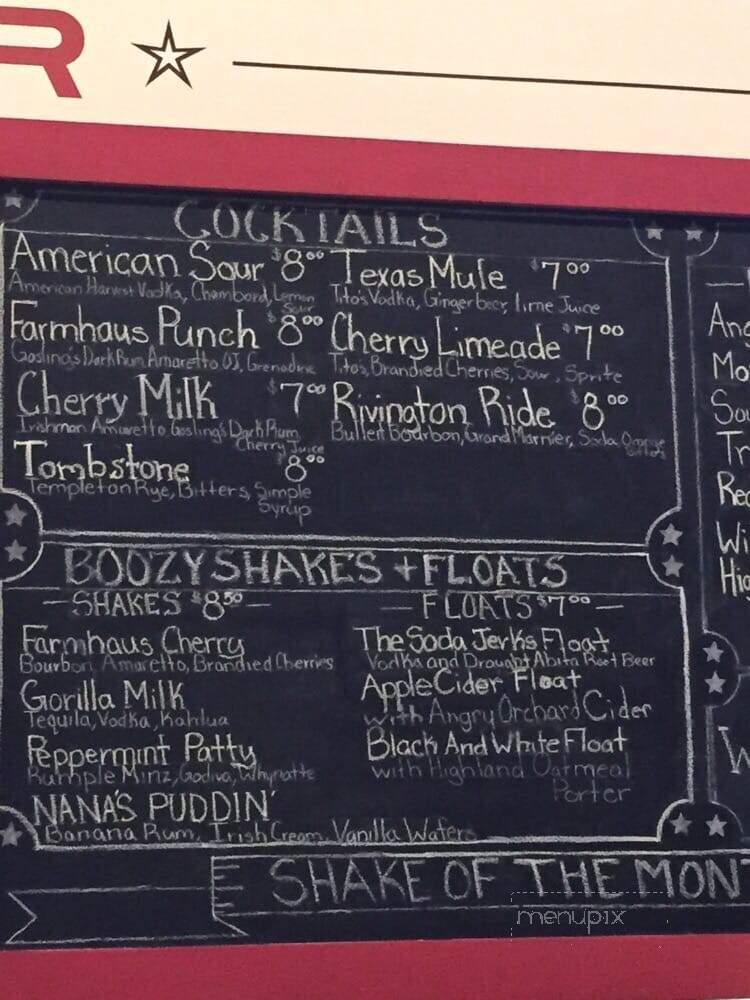 R
COCKTAILS
American Sour $8.00
American Harvest Vodka, Chambord, Lemon
Sour
Farmhaus Punch $8.00
Gosling's Dark Rum, Amaretto, OJ, Grenadine
Cherry Milk $7.00
Irishman Amaretto Gosling's Dark Rum
Cherry Juice
Tombstone 8.00
Templeton Rye, Bitters, Simple
Syrup
Texas Mule $7.00
Tito's Vodka, Ginger beer, lime Juice
Cherry Limeade $7.00
Tito's, Brandied Cherries, Sour, Sprite
Rivington Ride $8.00
Bulleit Bourbon, Grand Marnier, Soda Orange
BOOZY SHAKES + FLOATS
— SHAKES $8.50 —
Farmhaus Cherry
Bourbon Amaretto, Brandied Cherries
Gorilla Milk
Tequila, Vodka, Kahlua
Peppermint Patty
Rumple Minz, Godiva, Whynatte
NANA'S PUDDIN'
Banana Rum, Irish Cream, Vanilla Wafers
— FLOATS $7.00 —
The Soda Jerks Float
Vodka and Draught Abita Root Beer
Apple Cider Float
with Angry Orchard Cider
Black And White Float
with Highland Oatmeal
Porter
SHAKE OF THE MONT
Ang
Mo
Sou
Tr
Rec
Wi
Hig
W
menupix